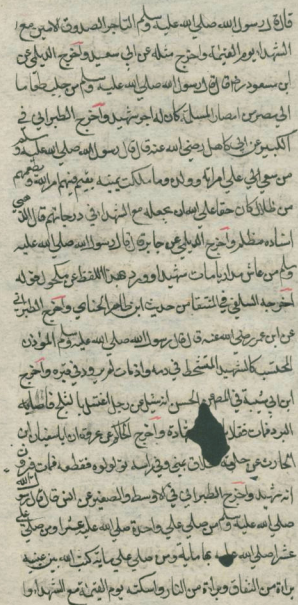 قال رسول الله صلي الله عليه وسلم التاجر الصدوق الامين مع
الشهداء يوم القيمة واخرج مثله عن ابي سعيد واخرج الديلمي عن
ابن مسعود رض قال قال رسول الله صلي الله عليه وسلم من جلب طعاما
الي مصر من امصار المسلمين كان له اجر شهيد واخرج الطبراني في
الكبير عن ابي كاهل رضي الله عنه قال قال رسول الله صلي الله عليه وسلم
من سعي الي علي امراته وولده وما ملكت يمينه يقيم فيهم امر الله ويطعمهم
من حلال كان حقا علي الله ان يجعله مع الشهداء في درجاتهم قال
اسناده مظلم واخرج الديلمي عن جابر قال قال رسول الله صلي الله عليه
وسلم من عاش مداريا مات شهيدا وورد هذا اللفظ عن
اخرجه السلفي في من حديث ابن واخرج الطبراني
عن ابن عمر رضي الله عنه قال قال رسول الله صلي الله عليه وسلم الموذن
المحتسب كالشهيد المتشحط في دمه واذا مات لم يدود في قبره واخرج
ابن ابي شيبة في عن الحسن انه سئل عن رجل اغتسل بالثلج فاصابه
البرد فمات فقال شهادة واخرج الحاكم عن عروة ان ابا سفيان ابن
الحارث بن حلق بمني وفي راسه ثولول فقطعه فمات فيرون
انه شهيد واخرج الطبراني في الاوسط والصغير عن انس قال قال رسول الله
صلي الله عليه وسلم من صلي علي واحدة صلي الله عليه عشرا ومن صلي
عشرا صلي الله عليه بها ماية ومن صلي علي ماية كتب الله بين عينيه
براة من النفاق وبراة من النار واسكنه يوم القيمة مع الشهداء